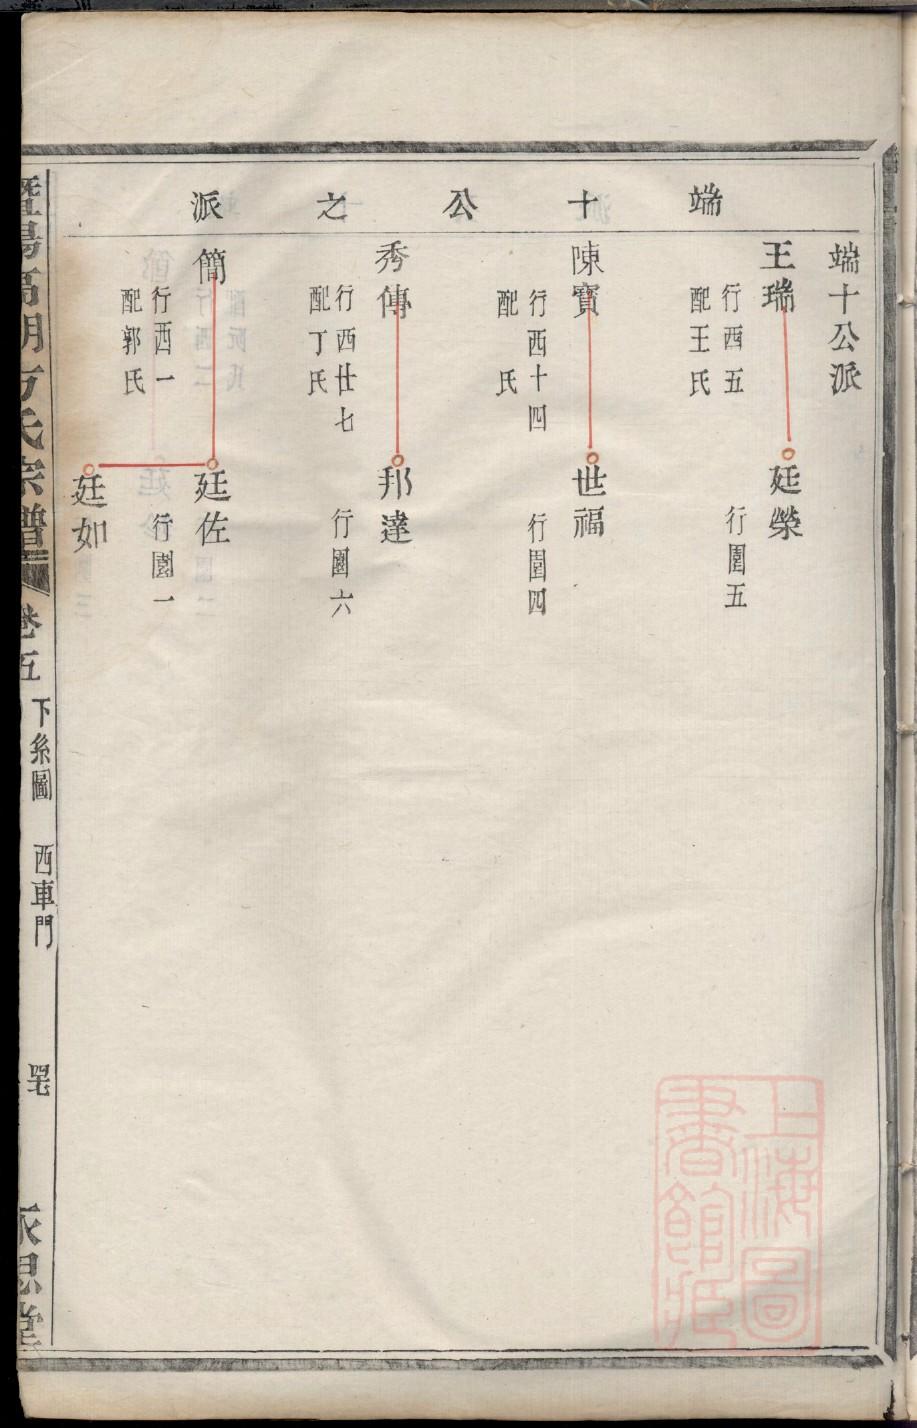 端十公之派
端十公派
王瑞
行西五
配王氏
廷榮
行園五
陳寶
行西十四
配 氏
世福
行園四
秀傳
行西廿七
配丁氏
邦達
行園六
簡
行西一
配郭氏
廷佐
行園一
廷如
暨陽高明方氏宗譜
卷五
下糸圖 西車門
永思堂
上海圖書館藏